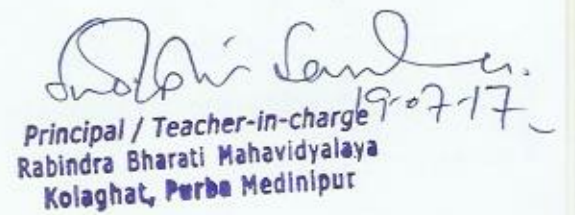 Principal / Teacher-in-charge 19-07-17
Rabindra Bharati Mahavidyalaya
Kolaghat, Purba Medinipur